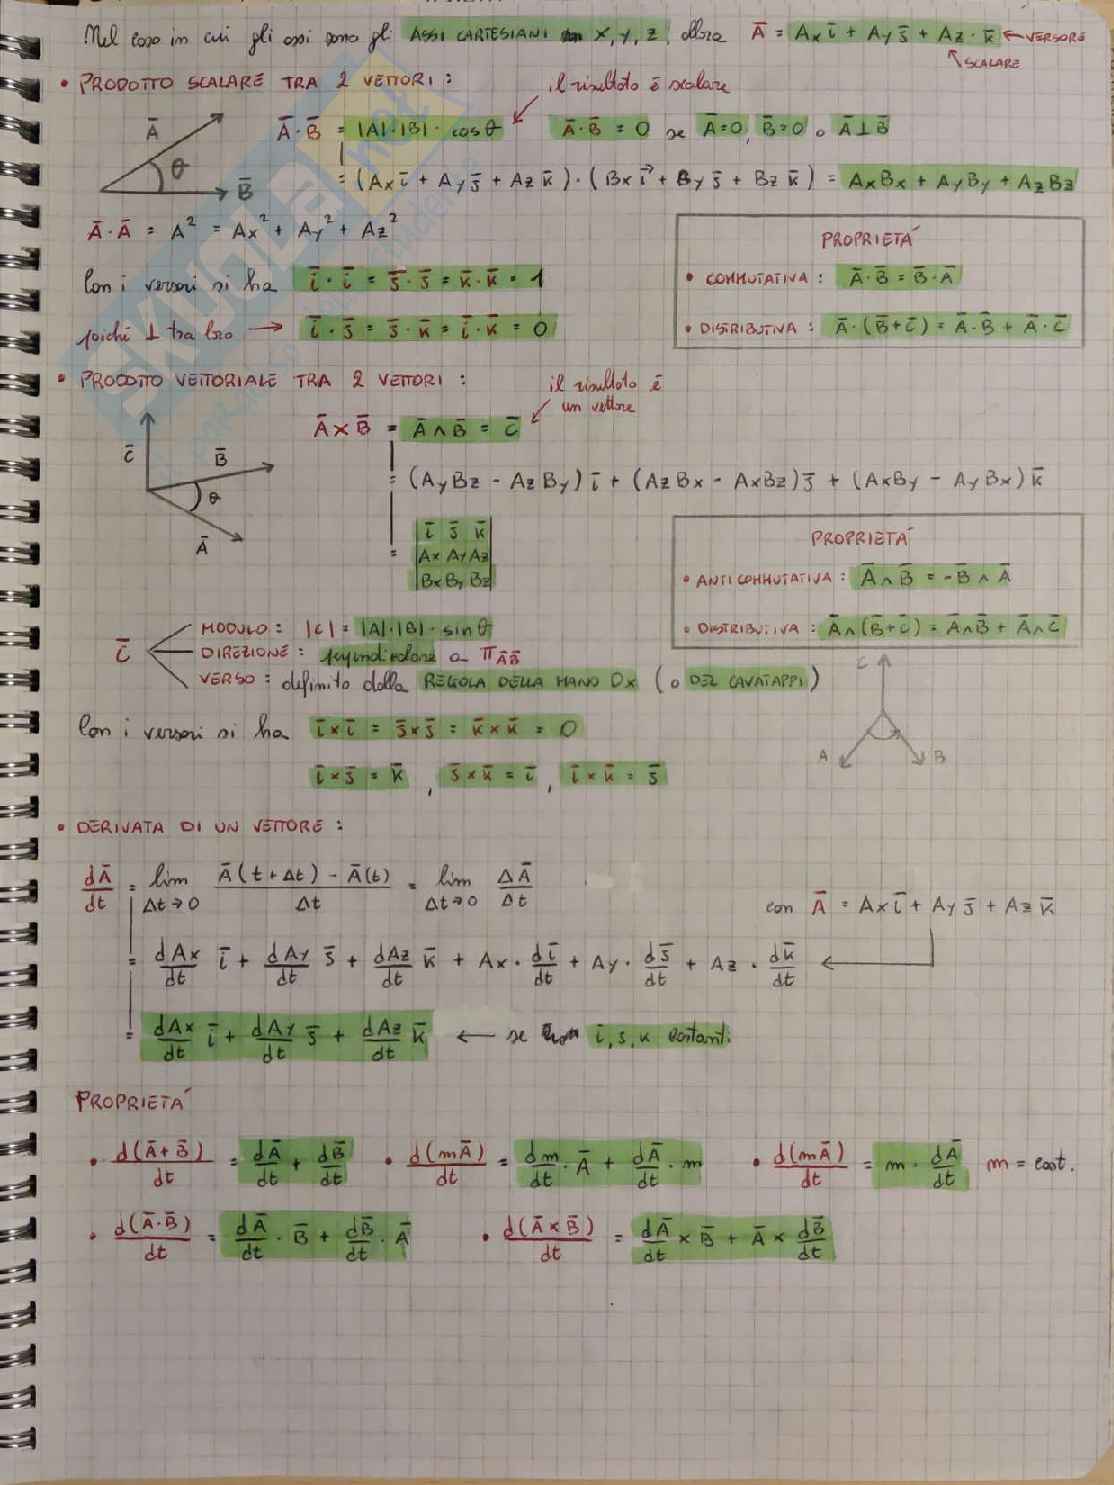 Nel caso in cui gli assi sono gli ASSI CARTESIANI x, y, z, allora Ā = Ax ī + Ay j̄ + Az · k̄ ← VERSORE
SCALARE
• PRODOTTO SCALARE TRA 2 VETTORI :
il risultato è scalare
Ā · B̄ = |A|·|B| · cosθ
Ā · B̄ = 0 se Ā=0, B̄=0 o Ā⊥B̄
Ā θ B̄
= (Ax ī + Ay j̄ + Az k̄) · (Bx i⃗ + By j̄ + Bz k̄) = AxBx + AyBy + AzBz
Ā · Ā = A² = Ax² + Ay² + Az²
Con i versori si ha ī · ī = j̄ · j̄ = k̄ · k̄ = 1
poiché ⊥ tra loro → ī · j̄ = j̄ · k̄ = ī · k̄ = 0
PROPRIETÁ
• COMMUTATIVA : Ā · B̄ = B̄ · Ā
• DISTRIBUTIVA : Ā · (B̄+C̄) = Ā · B̄ + Ā · C̄
• PRODOTTO VETTORIALE TRA 2 VETTORI :
il risultato è
un vettore
Ā × B̄ = Ā ∧ B̄ = C̄
C̄ B̄ θ Ā
= (AyBz - AzBy) ī + (AzBx - AxBz) j̄ + (AxBy - AyBx) k̄
= | ī j̄ k̄ |
| Ax Ay Az |
| Bx By Bz |
PROPRIETÁ
• ANTICOMMUTATIVA : Ā ∧ B̄ = -B̄ ∧ Ā
• DISTRIBUTIVA : Ā∧(B̄+C̄) = Ā∧B̄ + Ā∧C̄
C̄
MODULO : |C| = |A|·|B| · sinθ
DIREZIONE : perpendicolare a π ĀB̄
VERSO : definito dalla REGOLA DELLA MANO Dx (o DEL CAVATAPPI)
C A B
Con i versori si ha ī × ī = j̄ × j̄ = k̄ × k̄ = 0
ī × j̄ = k̄ , j̄ × k̄ = ī , ī × k̄ = j̄
• DERIVATA DI UN VETTORE :
dĀ/dt = lim Δt→0 (Ā(t+Δt) - Ā(t))/Δt = lim Δt→0 ΔĀ/Δt
con Ā = Ax ī + Ay j̄ + Az k̄
= dAx/dt ī + dAy/dt j̄ + dAz/dt k̄ + Ax · dī/dt + Ay · dj̄/dt + Az · dk̄/dt ←
= dAx/dt ī + dAy/dt j̄ + dAz/dt k̄ ← se i, j, k costanti
PROPRIETÁ
• d(Ā+B̄)/dt = dĀ/dt + dB̄/dt • d(mĀ)/dt = dm/dt · Ā + dĀ/dt · m • d(mĀ)/dt = m · dĀ/dt m = cost.
• d(Ā·B̄)/dt = dĀ/dt · B̄ + dB̄/dt · Ā • d(Ā×B̄)/dt = dĀ/dt × B̄ + Ā × dB̄/dt